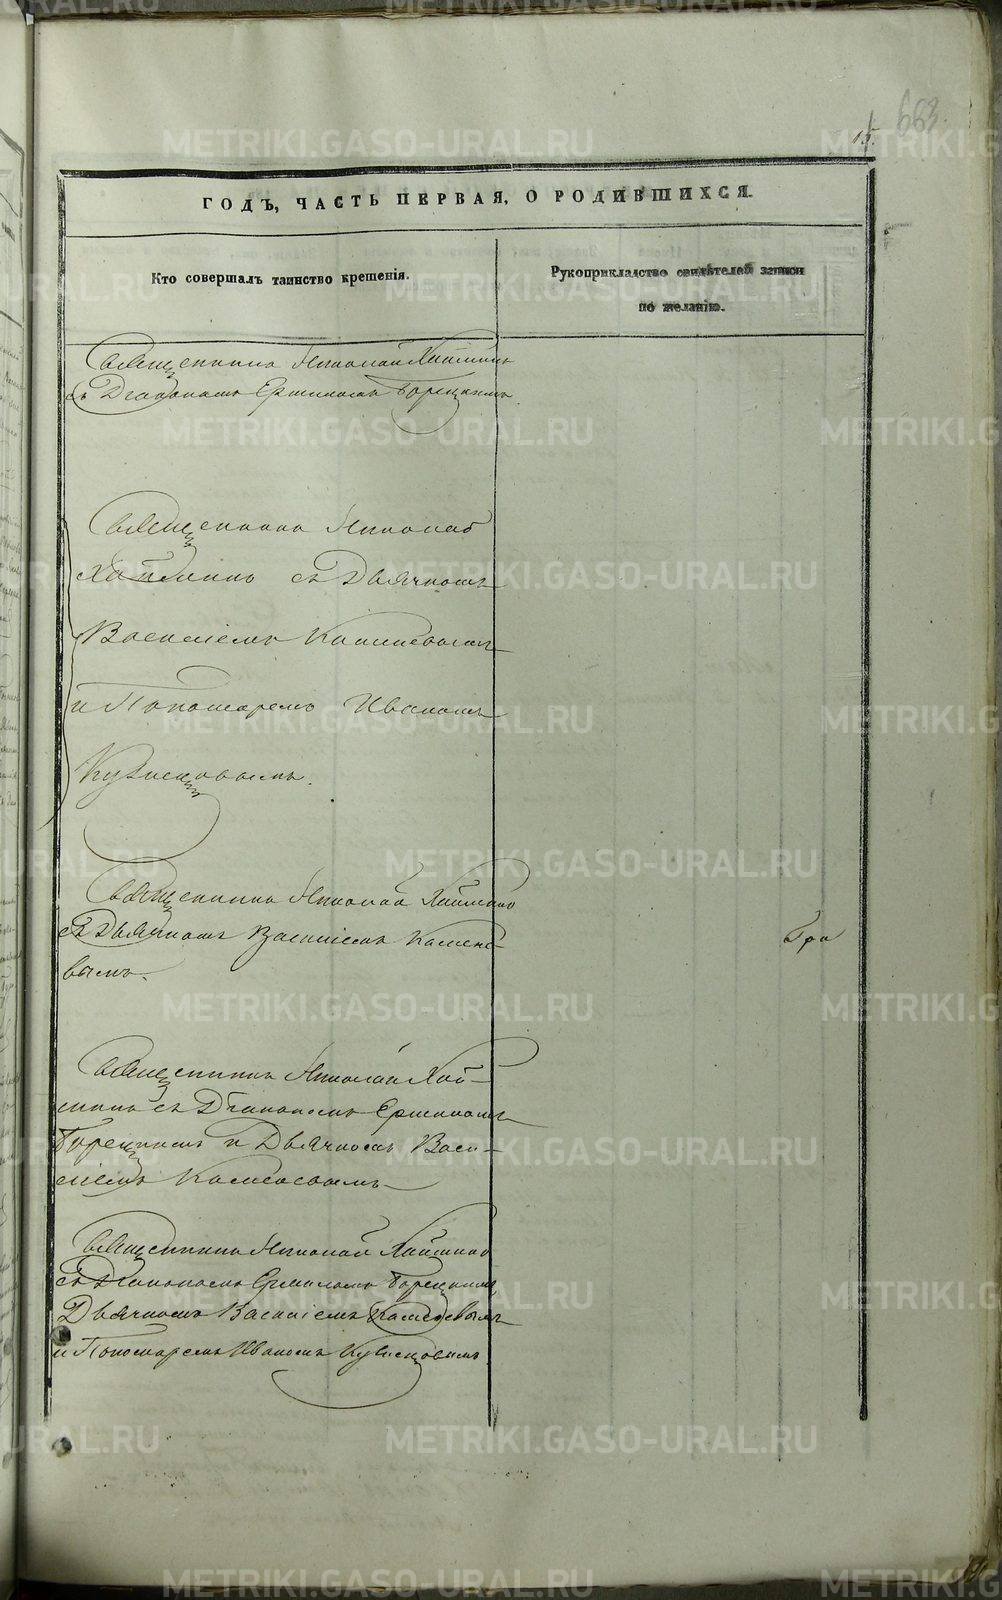 663.
15.
ГОДЪ, ЧАСТЬ ПЕРВАЯ, О РОДИВШИХСЯ.
Кто совершалъ таинство крещенія.
Рукоприкладство свидѣтелей записи
по желанію.
Священникъ Николай Хайминъ
съ Діакономъ Ермиломъ Горецкимъ.
Священникъ Николай
Хайминъ съ Дьячкомъ
Василіемъ
и Пономаремъ Иваномъ
Кузнецовымъ.
Священникъ Николай Хайминъ
съ Дьячкомъ Василіемъ
вымъ.
Гра
Священникъ Николай Хай-
минъ съ Діакономъ Ермиломъ
Горецкимъ и Дьячкомъ Васи-
ліемъ
Священникъ Николай Хайминъ
съ Діакономъ Ермиломъ Горецкимъ,
Дьячкомъ Василіемъ
и Пономаремъ Иваномъ Кузнецовымъ.
METRIKI.GASO-URAL.RU